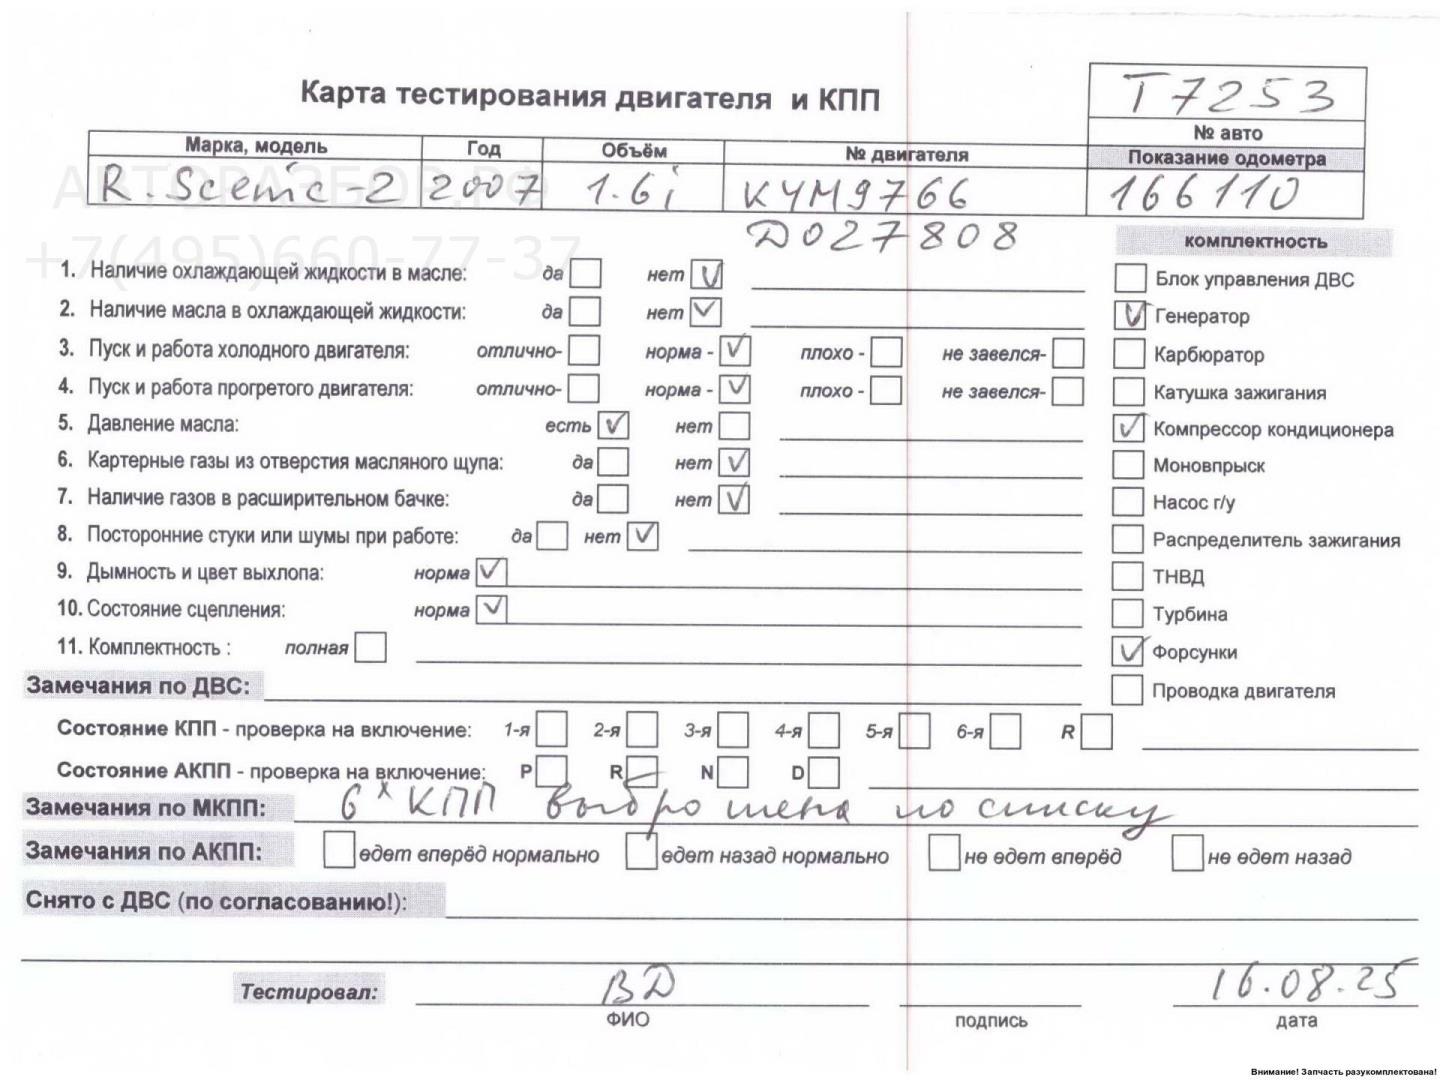 Карта тестирования двигателя и КПП
Т7253
№ авто
Марка, модель Год Объём № двигателя Показание одометра
R. Scenic-2 2007 1.6i K4M9766 166110
D027808
АВТОРАЗБОР.РФ
+7(495)660-77-37
комплектность
1. Наличие охлаждающей жидкости в масле: да нет V
Блок управления ДВС
2. Наличие масла в охлаждающей жидкости: да нет V
V Генератор
3. Пуск и работа холодного двигателя: отлично- норма - V плохо - не завелся-
Карбюратор
4. Пуск и работа прогретого двигателя: отлично- норма - V плохо - не завелся-
Катушка зажигания
5. Давление масла: есть V нет
V Компрессор кондиционера
6. Картерные газы из отверстия масляного щупа: да нет V
Моновпрыск
7. Наличие газов в расширительном бачке: да нет V
Насос г/у
8. Посторонние стуки или шумы при работе: да нет V
Распределитель зажигания
9. Дымность и цвет выхлопа: норма V
ТНВД
10. Состояние сцепления: норма V
Турбина
11. Комплектность : полная
V Форсунки
Замечания по ДВС:
Проводка двигателя
Состояние КПП - проверка на включение: 1-я 2-я 3-я 4-я 5-я 6-я R
Состояние АКПП - проверка на включение: P R N D
Замечания по МКПП: 6х КПП выброшена по списку
Замечания по АКПП: едет вперёд нормально едет назад нормально не едет вперёд не едет назад
Снято с ДВС (по согласованию!):
Тестировал: ВД 16.08.25
ФИО подпись дата
Внимание! Запчасть разукомплектована!